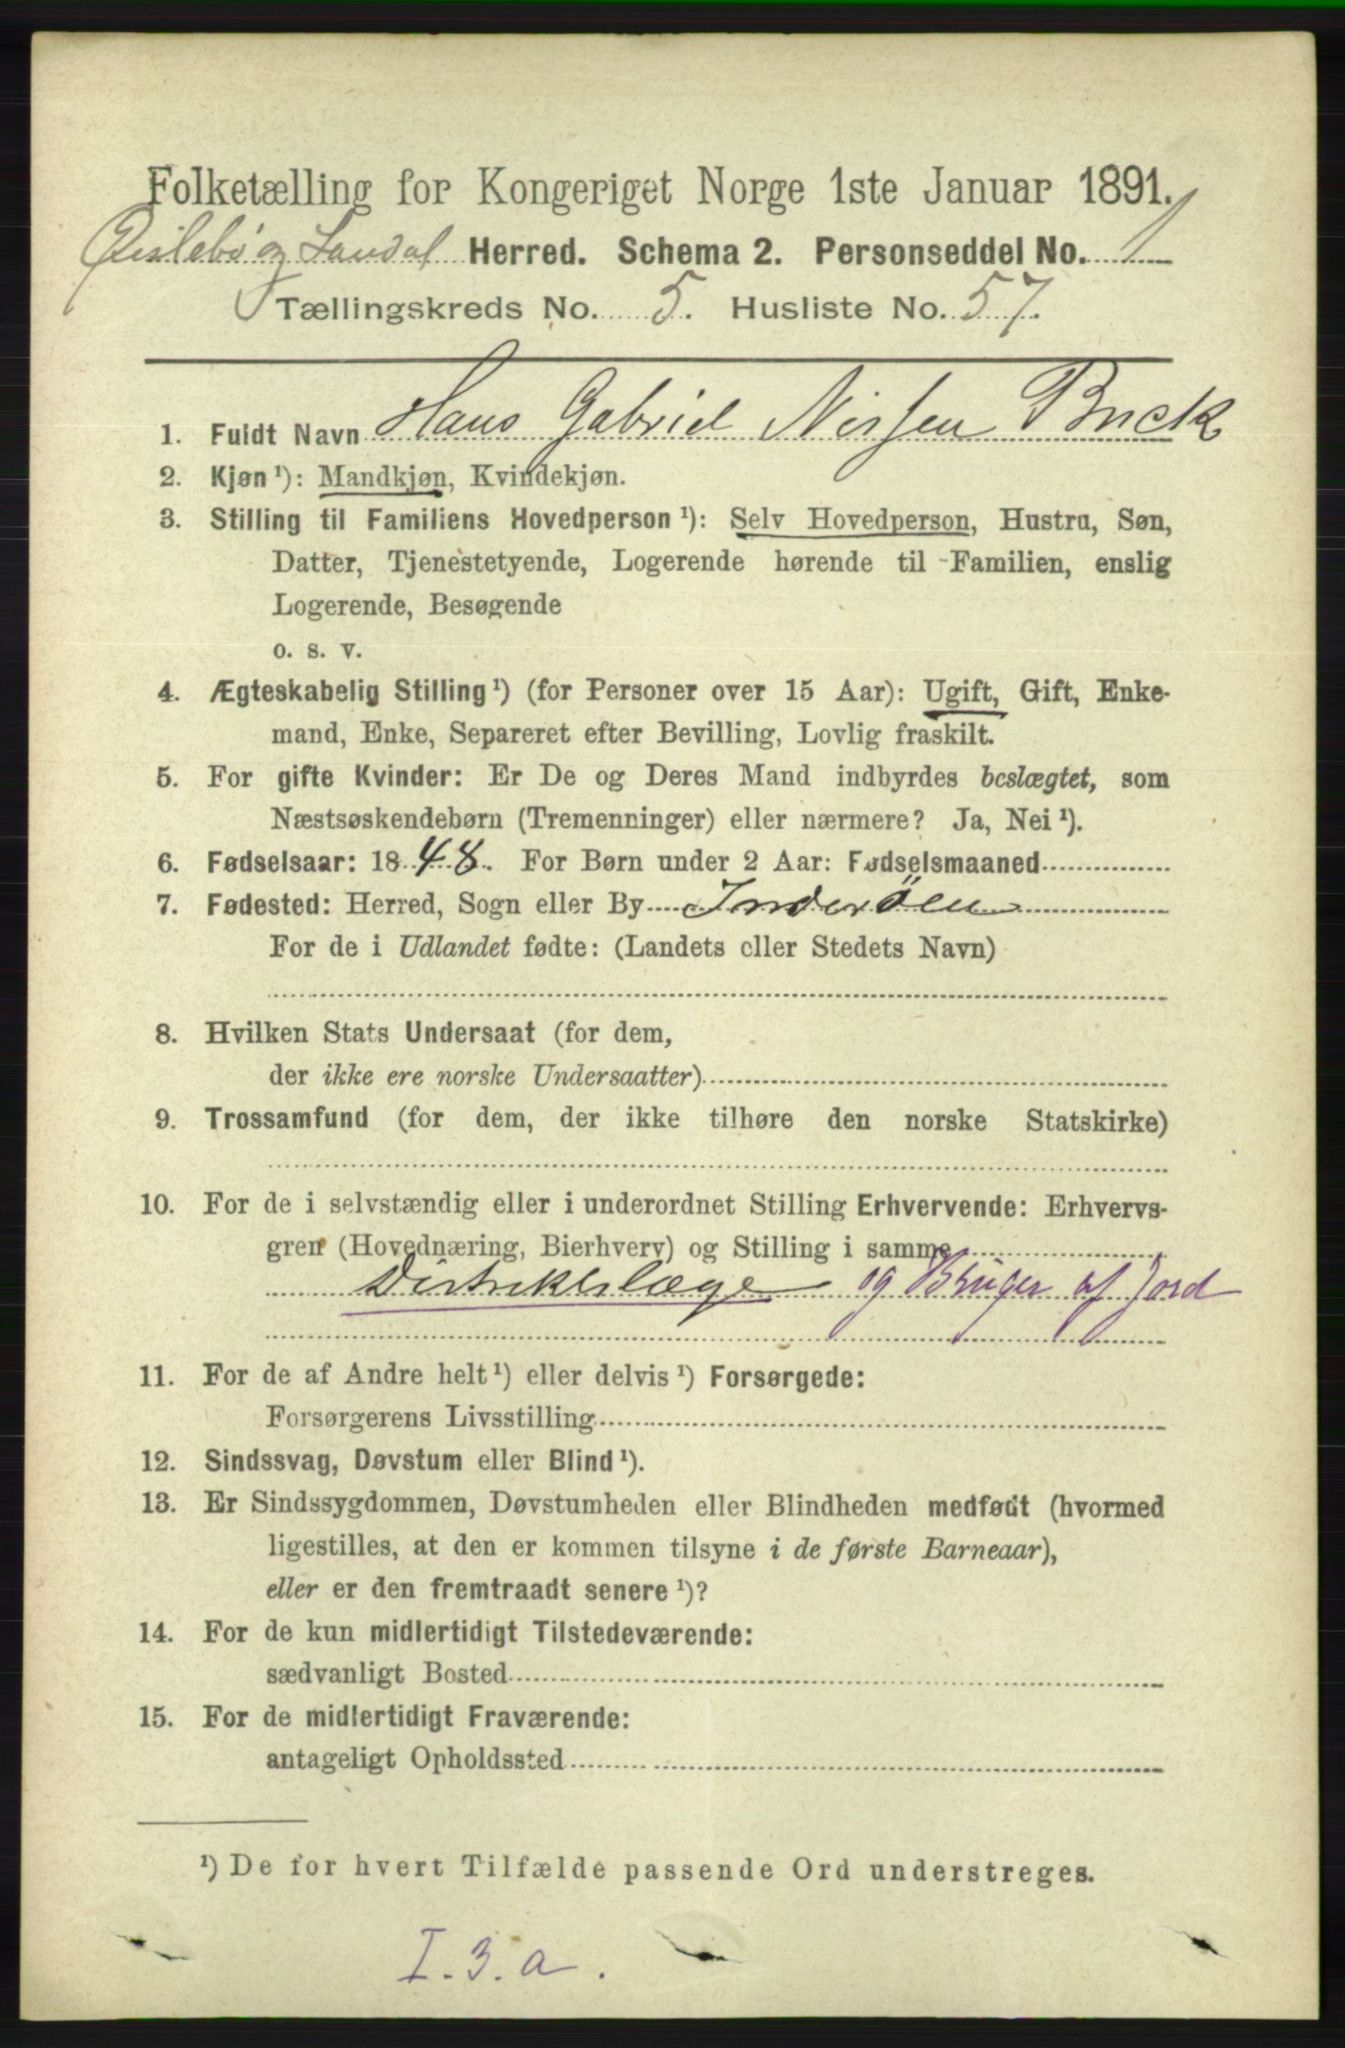 Folketælling for Kongeriget Norge 1ste Januar 1891.
Øislebø og Laudal Herred. Schema 2. Personseddel No. 1
Tællingskreds No. 5. Husliste No. 57.
1. Fuldt Navn Hans Gabriel Nissen Buck
2. Kjøn¹): Mandkjøn, Kvindekjøn.
3. Stilling til Familiens Hovedperson¹): Selv Hovedperson, Hustru, Søn,
Datter, Tjenestetyende, Logerende hørende til Familien, enslig
Logerende, Besøgende
o. s. v.
4. Ægteskabelig Stilling¹) (for Personer over 15 Aar): Ugift, Gift, Enke-
mand, Enke, Separeret efter Bevilling, Lovlig fraskilt.
5. For gifte Kvinder: Er De og Deres Mand indbyrdes beslægtet, som
Næstsøskendebørn (Tremenninger) eller nærmere? Ja, Nei¹).
6. Fødselsaar: 1848. For Børn under 2 Aar: Fødselsmaaned
7. Fødested: Herred, Sogn eller By Inderöen
For de i Udlandet fødte: (Landets eller Stedets Navn)
8. Hvilken Stats Undersaat (for dem,
der ikke ere norske Undersaatter)
9. Trossamfund (for dem, der ikke tilhøre den norske Statskirke)
10. For de i selvstændig eller i underordnet Stilling Erhvervende: Erhvervs-
gren (Hovednæring, Bierhverv) og Stilling i samme
Distriktslæge og Bruger af Jord
11. For de af Andre helt¹) eller delvis¹) Forsørgede:
Forsørgerens Livsstilling
12. Sindssvag, Døvstum eller Blind¹).
13. Er Sindssygdommen, Døvstumheden eller Blindheden medfødt (hvormed
ligestilles, at den er kommen tilsyne i de første Barneaar),
eller er den fremtraadt senere¹)?
14. For de kun midlertidigt Tilstedeværende:
sædvanligt Bosted
15. For de midlertidigt Fraværende:
antageligt Opholdssted
¹) De for hvert Tilfælde passende Ord understreges.
I. 3. a.